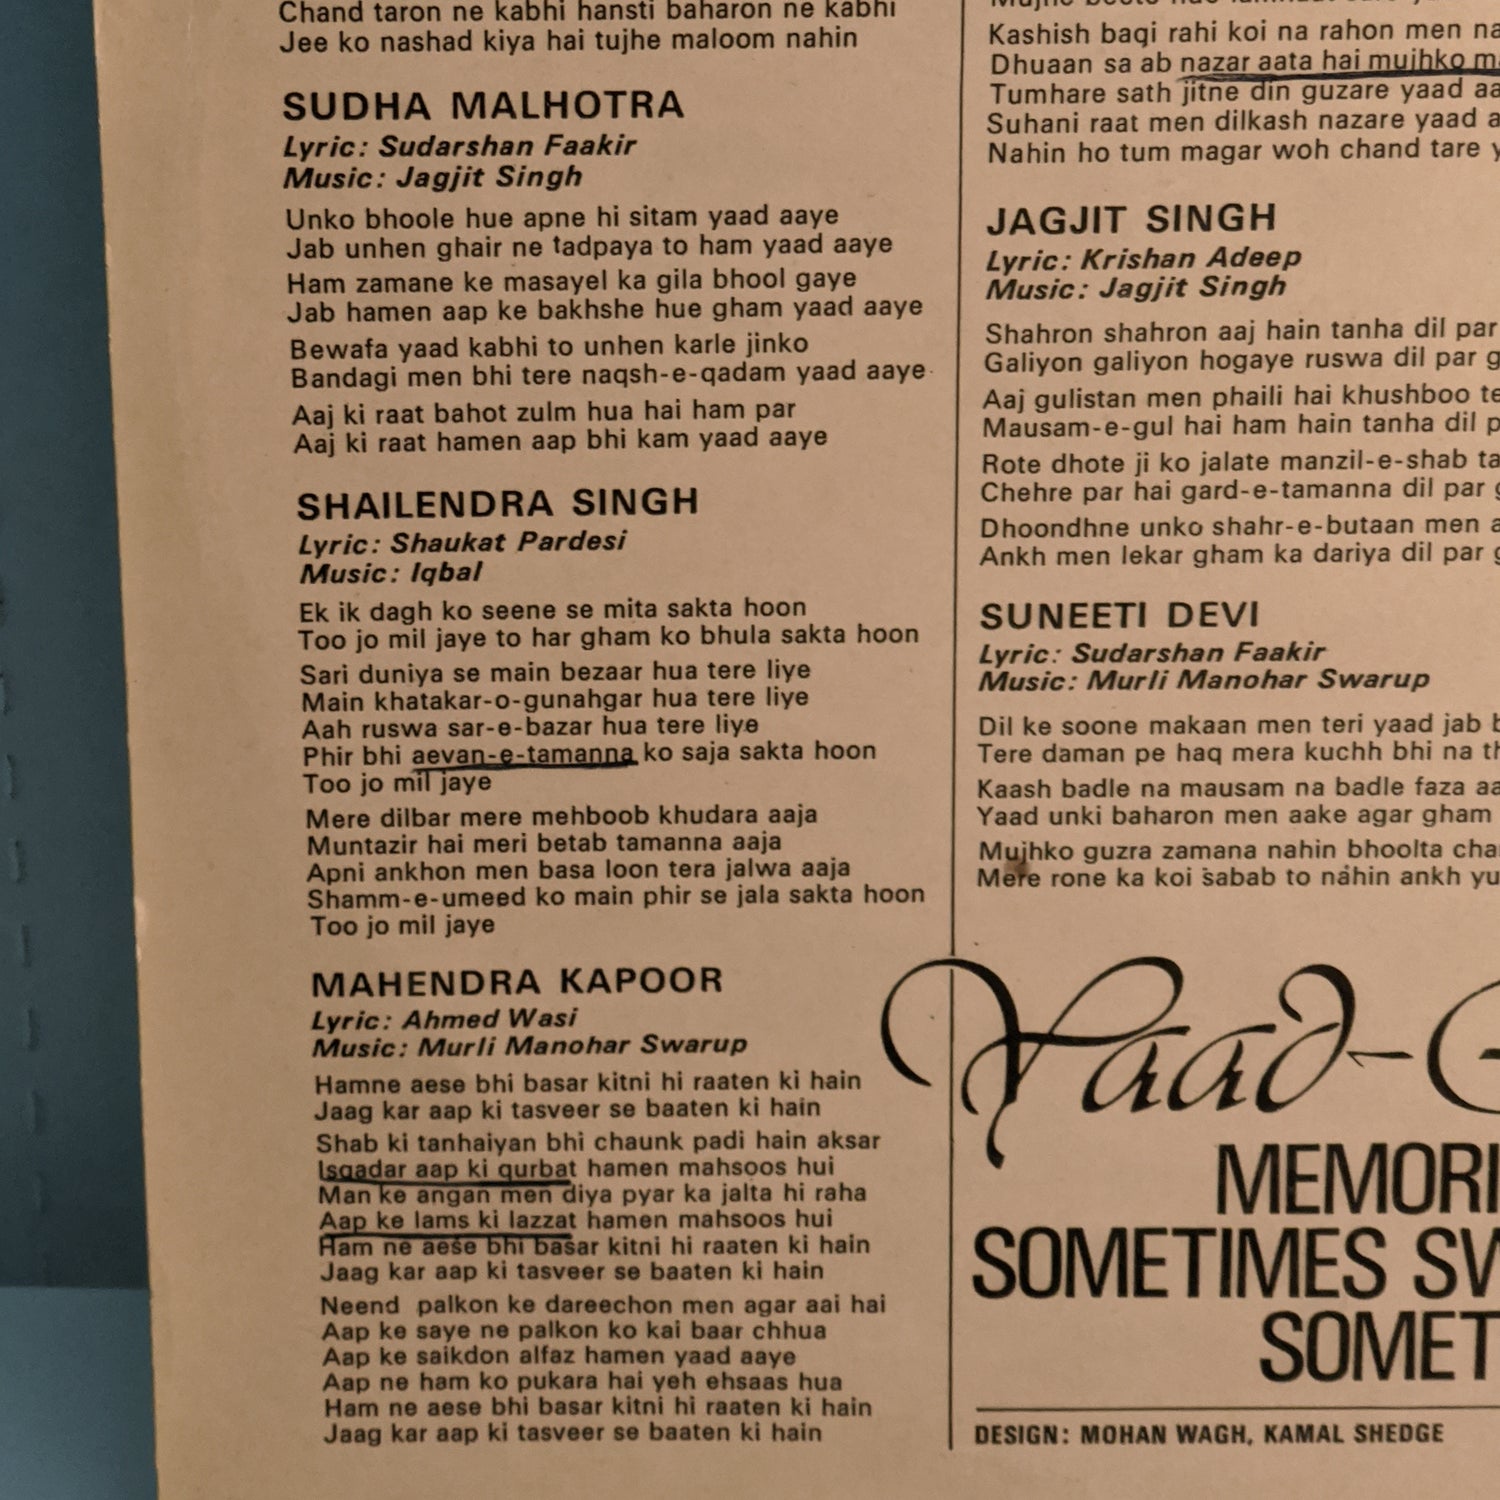 Chand taron ne kabhi hansti baharon ne kabhi
Jee ko nashad kiya hai tujhe maloom nahin
SUDHA MALHOTRA
Lyric: Sudarshan Faakir
Music: Jagjit Singh
Unko bhoole hue apne hi sitam yaad aaye
Jab unhen ghair ne tadpaya to ham yaad aaye
Ham zamane ke masayel ka gila bhool gaye
Jab hamen aap ke bakhshe hue gham yaad aaye
Bewafa yaad kabhi to unhen karle jinko
Bandagi men bhi tere naqsh-e-qadam yaad aaye
Aaj ki raat bahot zulm hua hai ham par
Aaj ki raat hamen aap bhi kam yaad aaye
SHAILENDRA SINGH
Lyric: Shaukat Pardesi
Music: Iqbal
Ek ik dagh ko seene se mita sakta hoon
Too jo mil jaye to har gham ko bhula sakta hoon
Sari duniya se main bezaar hua tere liye
Main khatakar-o-gunahgar hua tere liye
Aah ruswa sar-e-bazar hua tere liye
Phir bhi aevan-e-tamanna ko saja sakta hoon
Too jo mil jaye
Mere dilbar mere mehboob khudara aaja
Muntazir hai meri betab tamanna aaja
Apni ankhon men basa loon tera jalwa aaja
Shamm-e-umeed ko main phir se jala sakta hoon
Too jo mil jaye
MAHENDRA KAPOOR
Lyric: Ahmed Wasi
Music: Murli Manohar Swarup
Hamne aese bhi basar kitni hi raaten ki hain
Jaag kar aap ki tasveer se baaten ki hain
Shab ki tanhaiyan bhi chaunk padi hain aksar
Isqadar aap ki qurbat hamen mahsoos hui
Man ke angan men diya pyar ka jalta hi raha
Aap ke lams ki lazzat hamen mahsoos hui
Ham ne aese bhi basar kitni hi raaten ki hain
Jaag kar aap ki tasveer se baaten ki hain
Neend palkon ke dareechon men agar aai hai
Aap ke saye ne palkon ko kai baar chhua
Aap ke saikdon alfaz hamen yaad aaye
Aap ne ham ko pukara hai yeh ehsaas hua
Ham ne aese bhi basar kitni hi raaten ki hain
Jaag kar aap ki tasveer se baaten ki hain
Kashish baqi rahi koi na rahon men na
Dhuaan sa ab nazar aata hai mujhko m
Tumhare sath jitne din guzare yaad aa
Suhani raat men dilkash nazare yaad a
Nahin ho tum magar woh chand tare y
JAGJIT SINGH
Lyric: Krishan Adeep
Music: Jagjit Singh
Shahron shahron aaj hain tanha dil par
Galiyon galiyon hogaye ruswa dil par g
Aaj gulistan men phaili hai khushboo te
Mausam-e-gul hai ham hain tanha dil p
Rote dhote ji ko jalate manzil-e-shab ta
Chehre par hai gard-e-tamanna dil par g
Dhoondhne unko shahr-e-butaan men a
Ankh men lekar gham ka dariya dil par g
SUNEETI DEVI
Lyric: Sudarshan Faakir
Music: Murli Manohar Swarup
Dil ke soone makaan men teri yaad jab b
Tere daman pe haq mera kuchh bhi na th
Kaash badle na mausam na badle faza aa
Yaad unki baharon men aake agar gham
Mujhko guzra zamana nahin bhoolta cha
Mere rone ka koi sabab to nahin ankh yu
Yaad-
MEMORI
SOMETIMES SW
SOMET
DESIGN: MOHAN WAGH, KAMAL SHEDGE